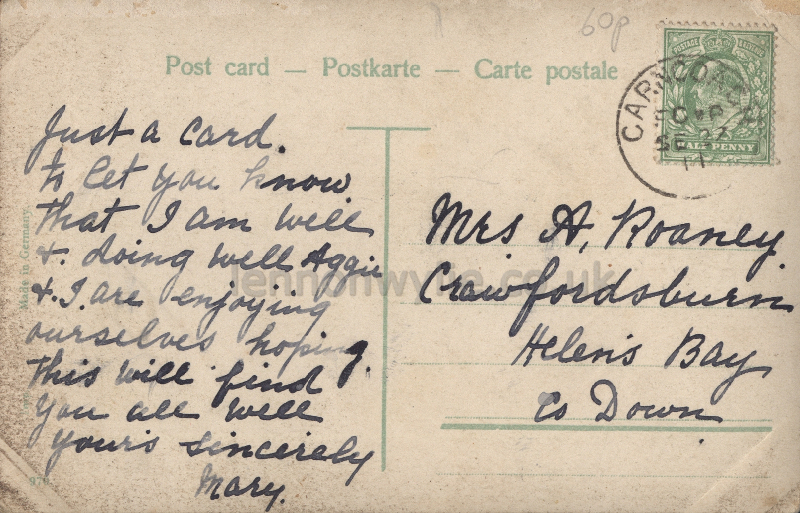 60p
Post card — Postkarte — Carte postale
POSTAGE
HALFPENNY
SE 27
11
Just a Card.
to let you know
that I am well
& doing well Aggie
& I are enjoying
ourselves hoping
this will find
you all well
yours sincerely
Mary.
Mrs A, Roaney
Crawfordsburn
Helen's Bay
Co Down
Made in Germany.
lennonwylie.co.uk